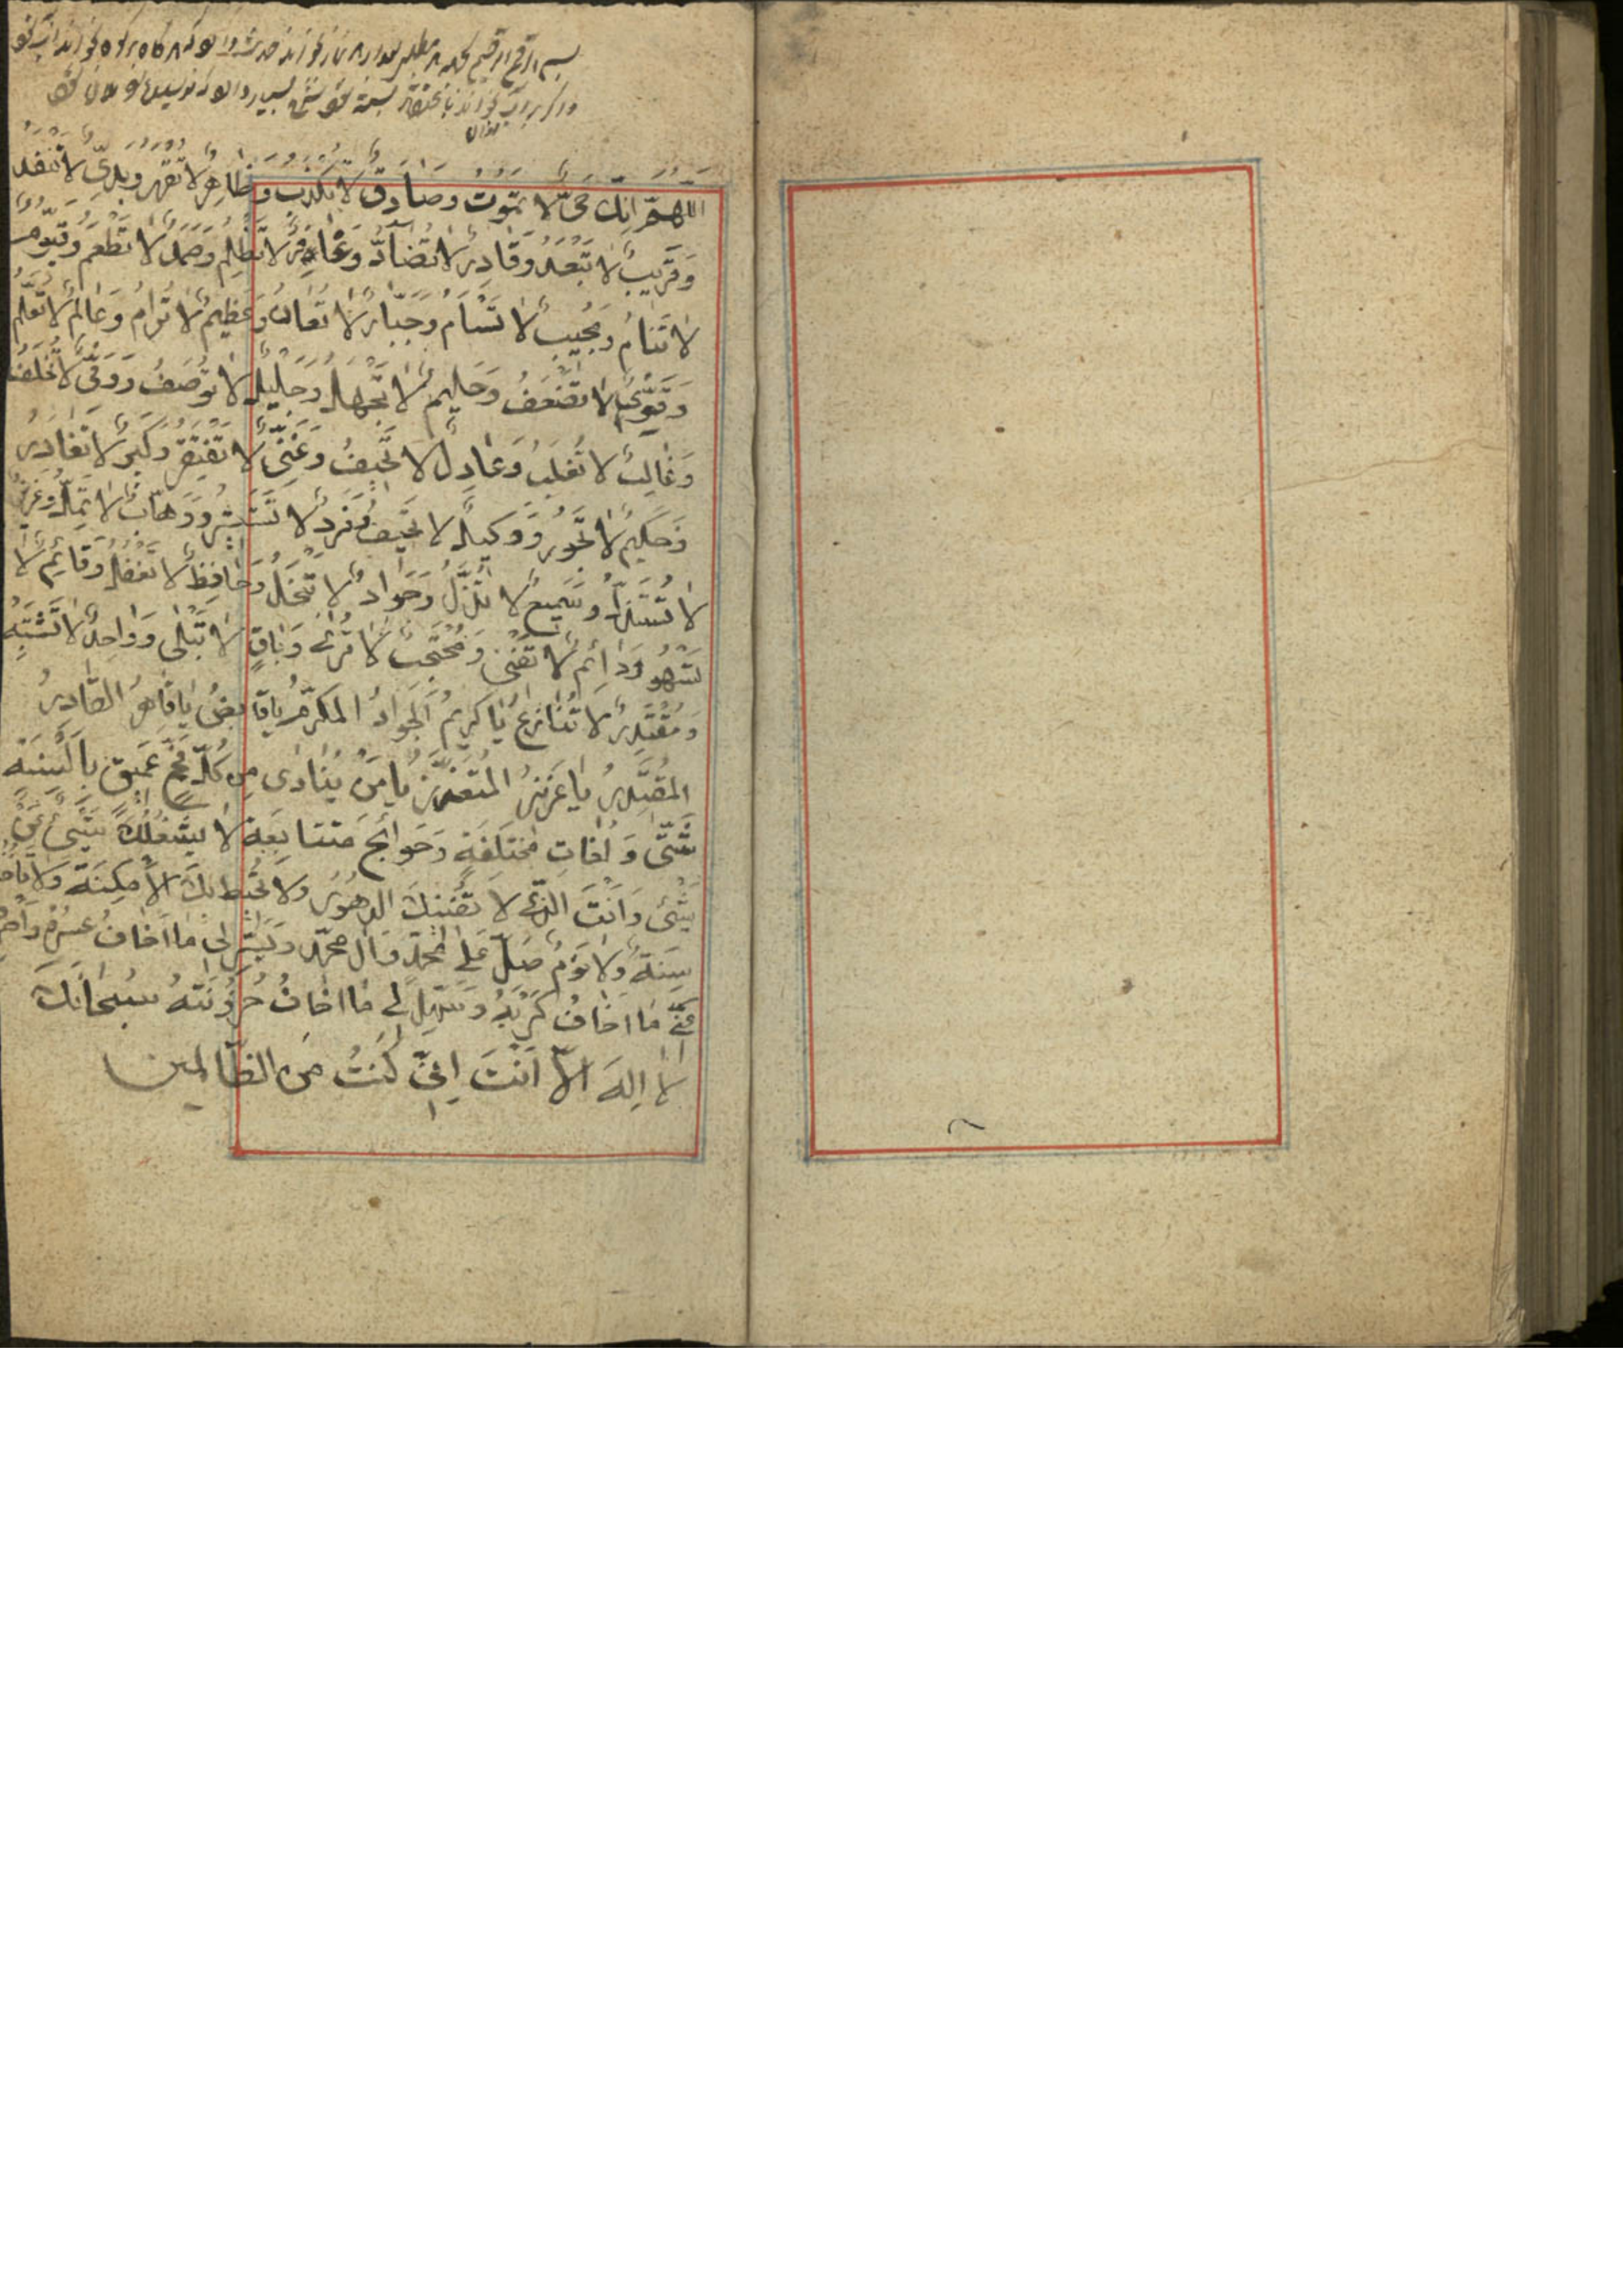 اللّهُمَّ اِنَّكَ حَىٌّ لا تَمُوتُ وَصَادِقٌ لا تَكْذِبُ وَظَاهِرٌ لا تُقْهَرُ وَبَدِىٌّ لا تَنْفَدُ
وَقَرِيبٌ لا تَبْعُدُ وَقَادِرٌ لا تُضَادُّ وَغَافِرٌ لا تَظْلِمُ وَصَمَدٌ لا تُطْعَمُ وَقَيُّومٌ
لا تَنَامُ وَمُجِيبٌ لا تَسْأَمُ وَجَبَّارٌ لا تُعَانُ وَعَظِيمٌ لا تُرَامُ وَعَالِمٌ لا تُعَلَّمُ
وَقَوِىٌّ لا تَضْعَفُ وَحَلِيمٌ لا تَجْهَلُ وَجَلِيلٌ لا تُوصَفُ وَوَفِىٌّ لا تُخْلِفُ
وَغَالِبٌ لا تُغْلَبُ وَعَادِلٌ لا تَحِيفُ وَغَنِىٌّ لا تَفْتَقِرُ وَكَبِيرٌ لا تُغَادِرُ
وَحَكِيمٌ لا تَجُورُ وَوَكِيلٌ لا تَحِيفُ وَفَرْدٌ لا تَسْتَشِيرُ وَوَهَّابٌ لا تَمَلُّ وَعَزِيزٌ
لا تُسْتَذَلُّ وَسَمِيعٌ لا تَذْهَلُ وَجَوَادٌ لا تَبْخَلُ وَحَافِظٌ لا تَغْفُلُ وَقَائِمٌ لا
تَسْهُو وَدَائِمٌ لا تَفْنَى وَمُحْتَجِبٌ لا تُرَى وَبَاقٍ لا تَبْلَى وَوَاحِدٌ لا تَشْتَبِهُ
وَمُقْتَدِرٌ لا تُنَازَعُ يَا كَرِيمُ الْجَوَادُ الْمُكَرَّمُ يَا قَابِضُ يَا قَاهِرُ القَادِرُ
المُقْتَدِرُ يَا عَزِيزُ المُتَعَزِّزُ يَا مَنْ يُنَادَى مِنْ كُلِّ فَجٍّ عَمِيقٍ بِأَلْسِنَةٍ
شَتَّى وَلُغَاتٍ مُخْتَلِفَةٍ وَحَوَائِجَ مُتَتَابِعَةٍ لا يَشْغَلُكَ شَىْءٌ عَنْ
شَىْءٍ وَاَنْتَ الَّذِى لا تُفْنِيكَ الدُّهُورُ وَلا تُحِيطُ بِكَ الأَمْكِنَةُ وَلا تَأْخُذُكَ
سِنَةٌ وَلا نَوْمٌ صَلِّ عَلَى مُحَمَّدٍ وَآلِ مُحَمَّدٍ وَيَسِّرْ لِى مَا اَخَافُ عُسْرَهُ وَفَرِّجْ
عَنِّى مَا اَخَافُ كَرْبَهُ وَسَهِّلْ لِى مَا اَخَافُ حُزُونَتَهُ سُبْحَانَكَ
لا اِلهَ اِلاَّ اَنْتَ اِنِّى كُنْتُ مِنَ الظَّالِمِينَ